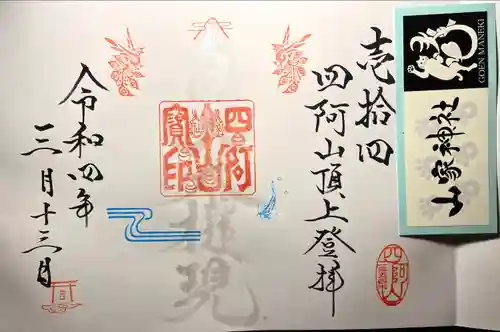 壱拾四
四阿山頂上登拝
四阿山
寶印
権現
令和四年
三月十三日
GOEN MANEKI
山家神社